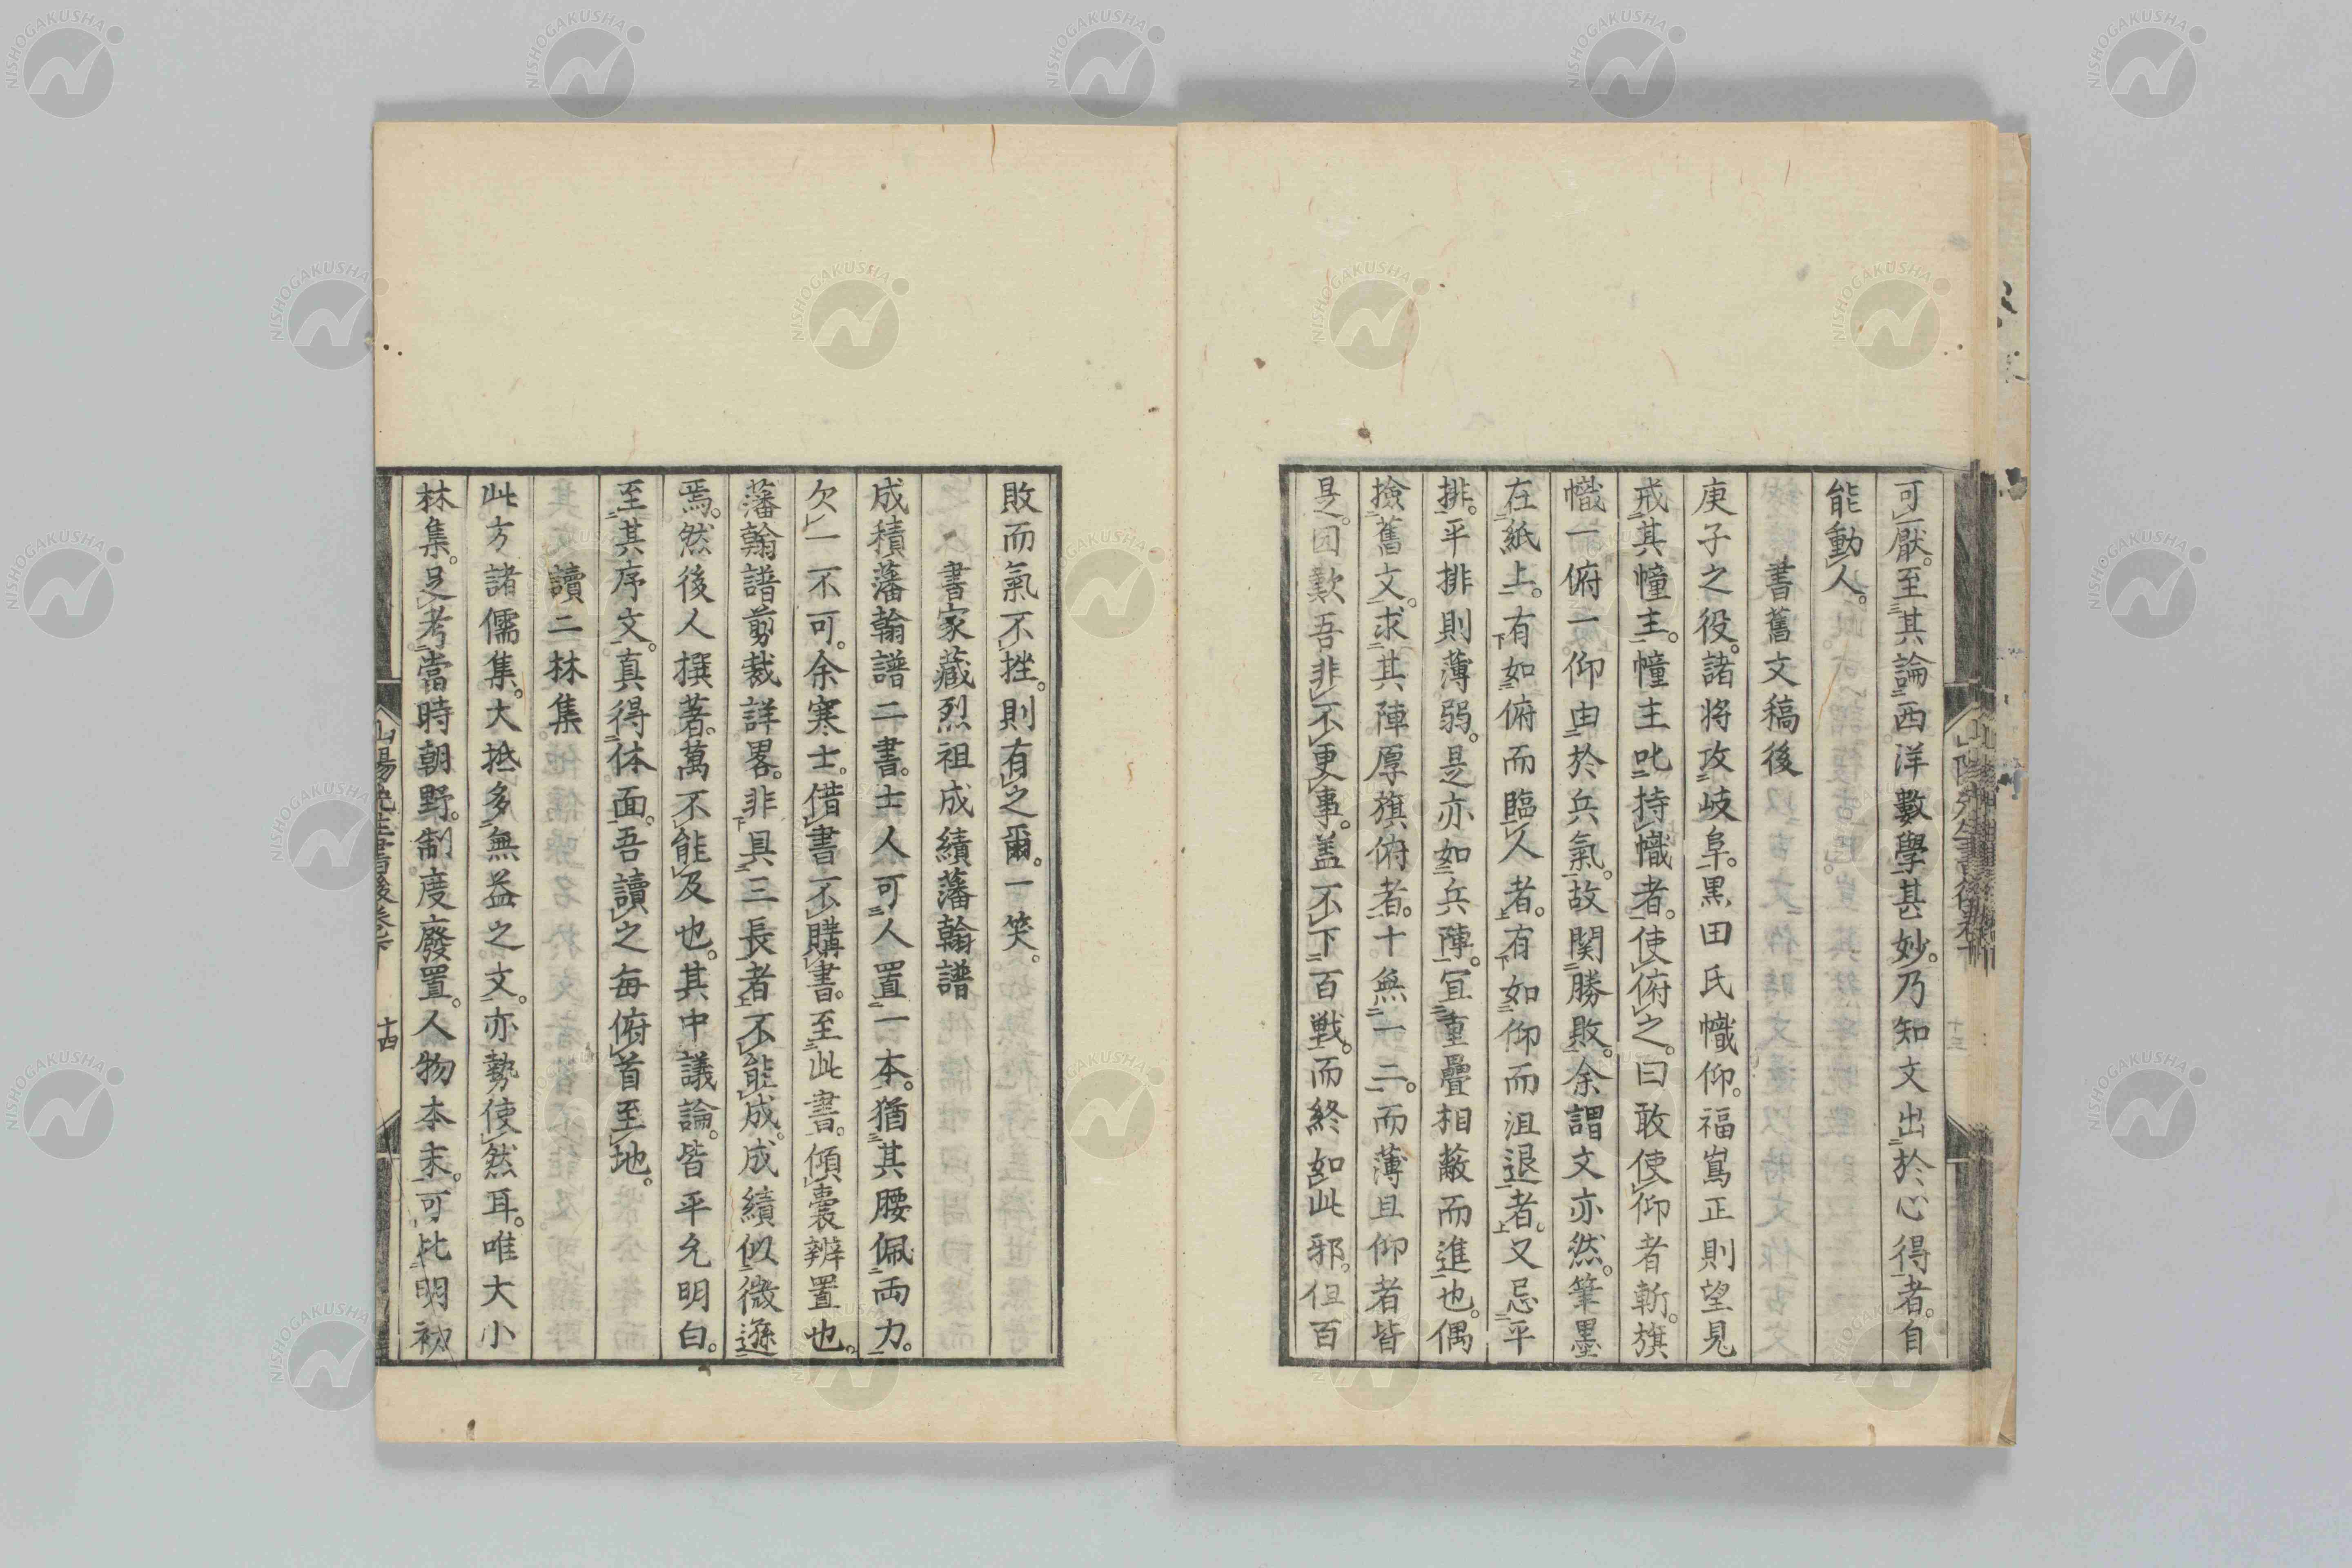 可厭。至其論西洋數學甚妙。乃知文出於心得者。自
能動人。
書舊文稿後
庚子之役。諸将攻岐阜。黒田氏幟仰。福嶌正則望見
戒其幢主。幢主叱持幟者。使俯之。曰敢使仰者斬。旗
幟一俯一仰由於兵氣。故関勝敗。余謂文亦然。筆墨
在紙上。有如俯而臨人者。有如仰而沮退者。又忌平
排。平排則薄弱。是亦如兵陣。宜重疊相蔽而進也。偶
撿舊文。求其陣厚旗俯者。十無一二。而薄且仰者皆
是。因歎吾非不更事。盖不下百戦。而終如此邪。但百
敗而氣不挫。則有之爾。一笑。
書家藏烈祖成績藩翰譜
成積藩翰譜二書。士人可人置一本。猶其腰佩両力。
欠一不可。余寒士。借書不購書。至此書。傾嚢辨置也。
藩翰譜剪裁詳畧。非具三長者不能成。成績似微遜
焉。然後人撰著。萬不能及也。其中議論。皆平允明白。
至其序文。真得体面。吾讀之毎俯首至地。
讀二林集
此方諸儒集。大抵多無益之文。亦勢使然耳。唯大小
林集。足考當時朝野。制度廢置。人物本末。可比明初
十四
NISHOGAKUSHA